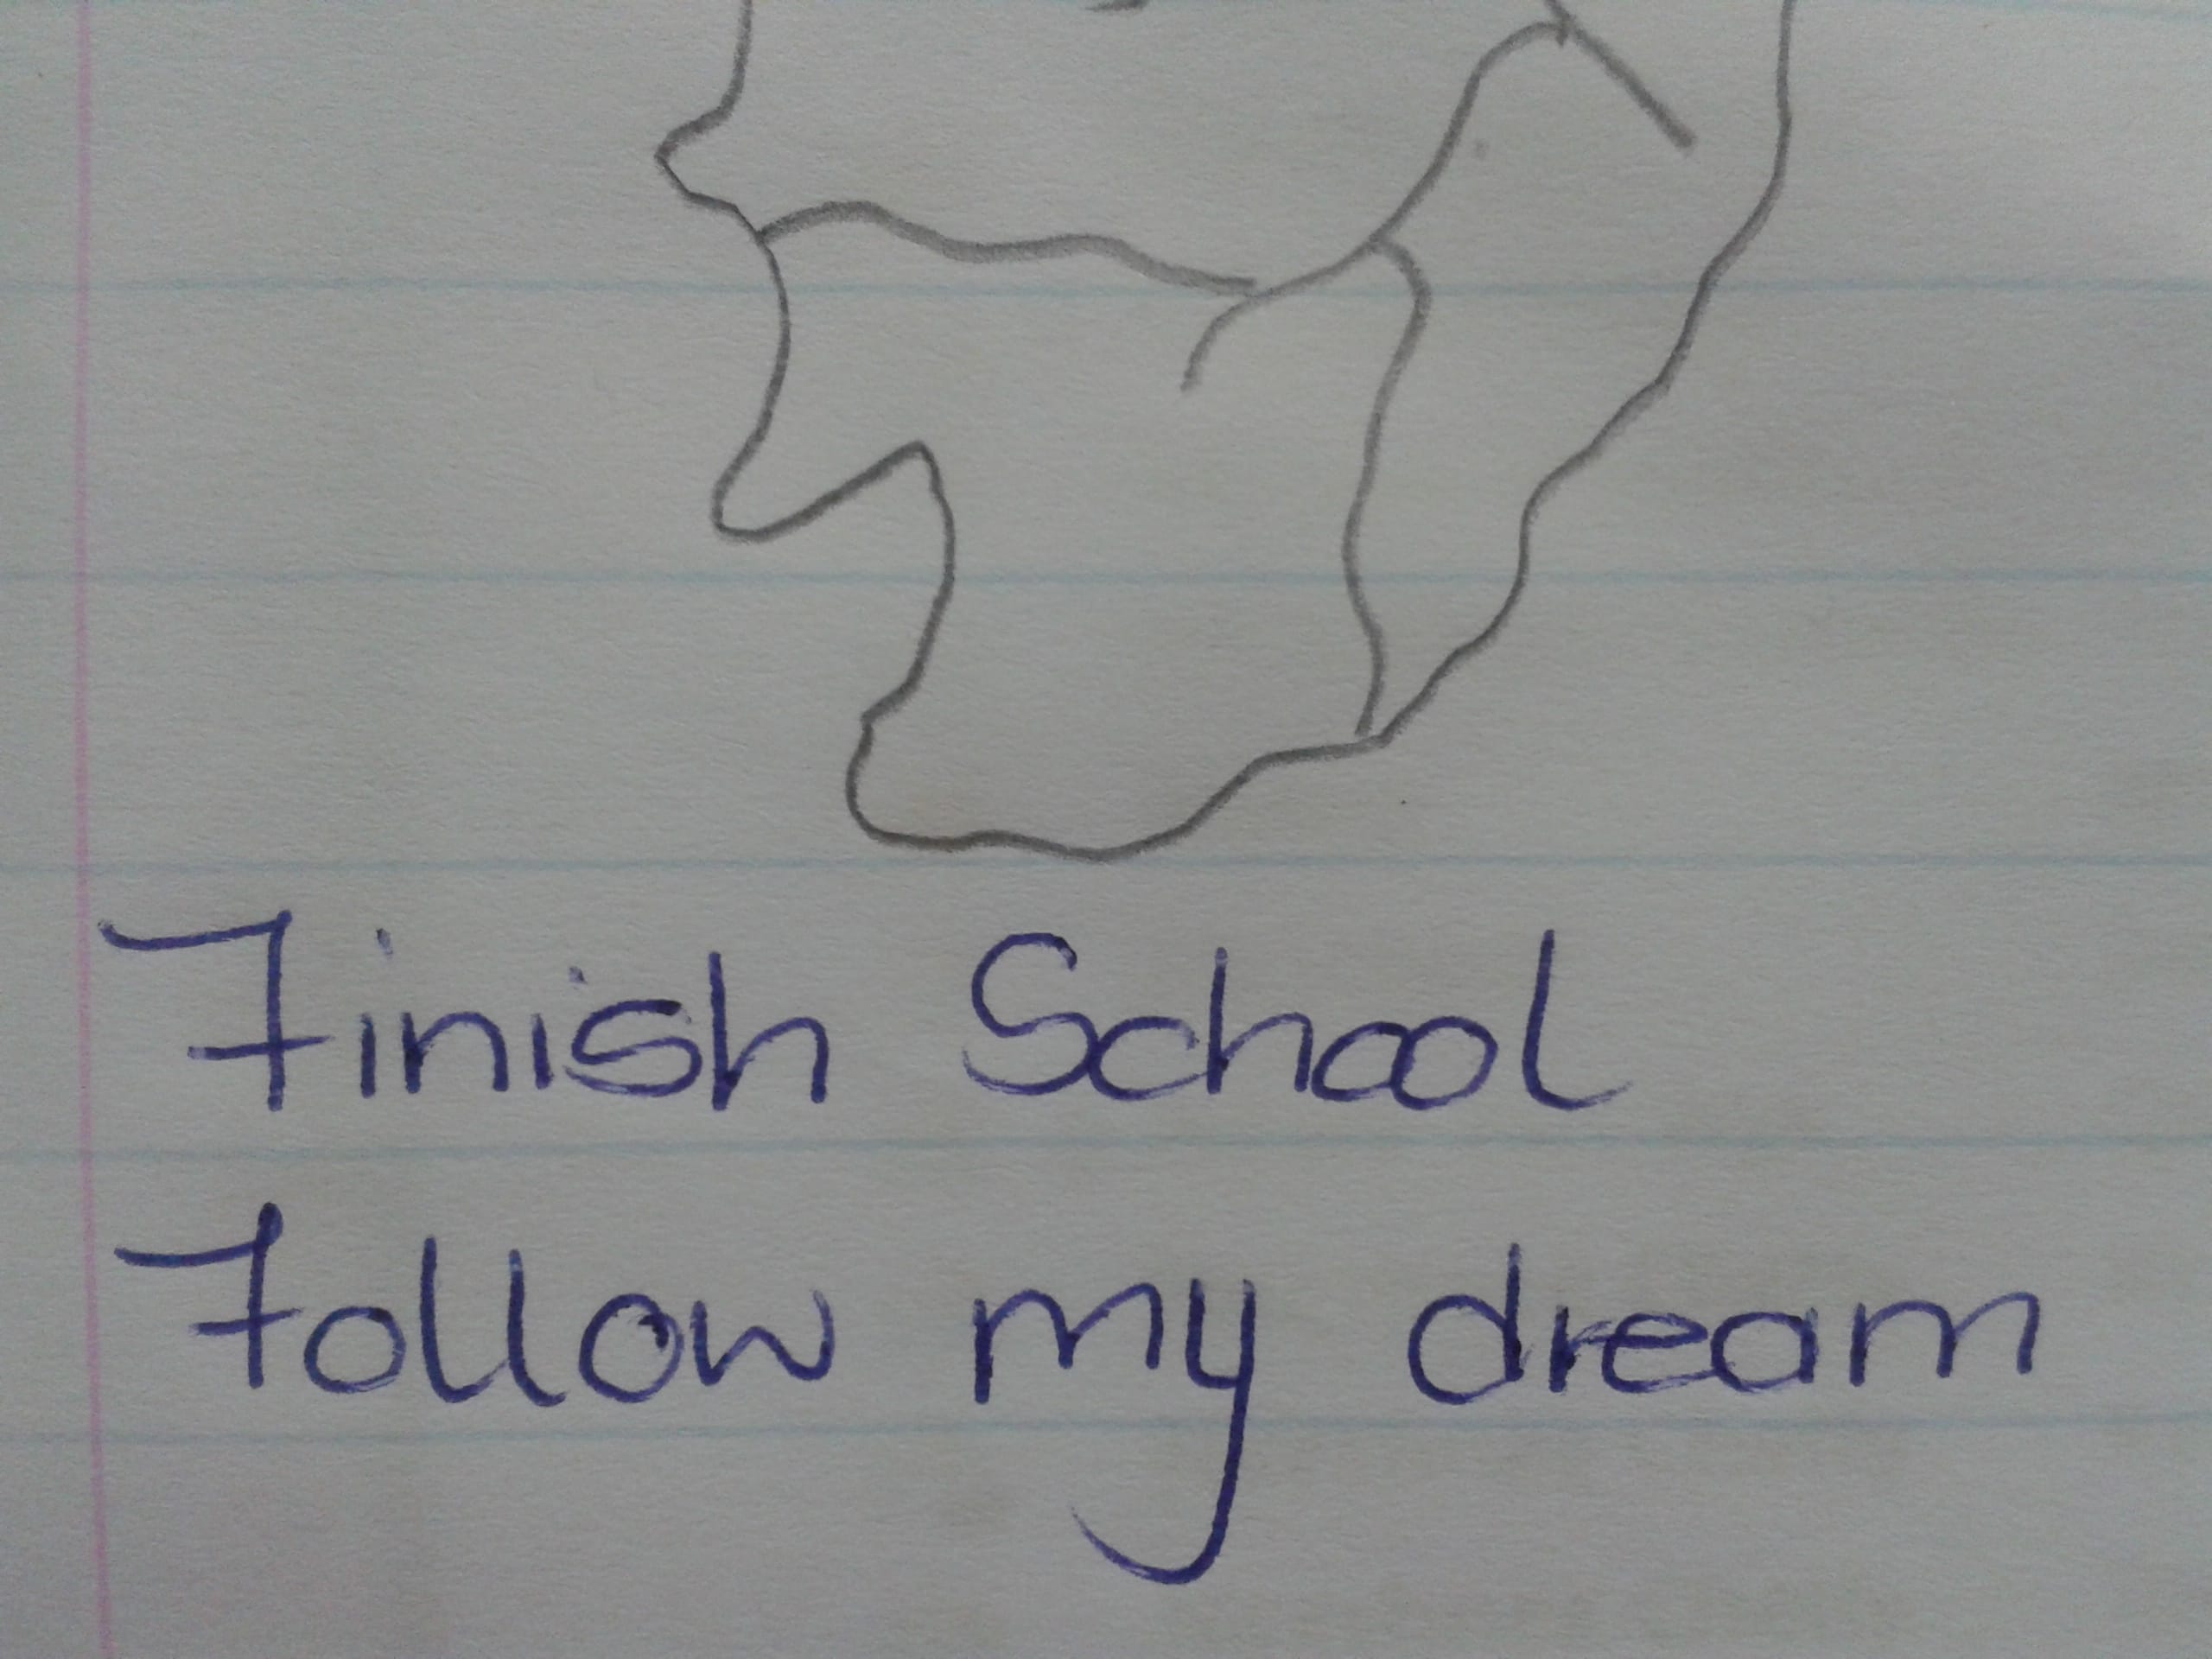 Finish School
Follow my dream